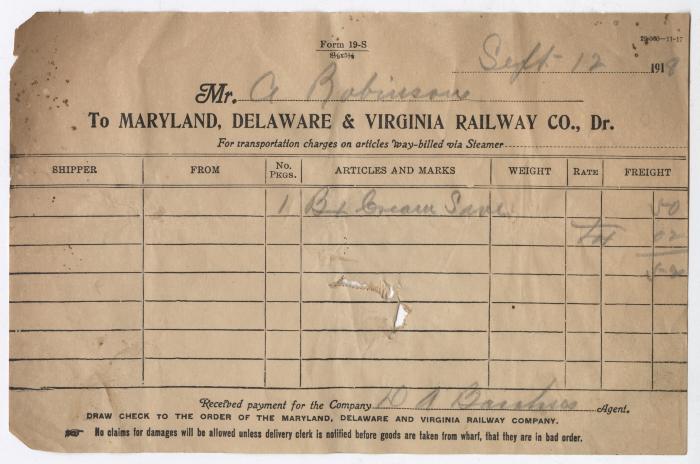 Form 19-S
8½x5½
Sept 12 1918
Mr. A Robinson
To MARYLAND, DELAWARE & VIRGINIA RAILWAY CO., Dr.
For transportation charges on articles way-billed via Steamer
SHIPPER FROM No. PKGS. ARTICLES AND MARKS WEIGHT RATE FREIGHT
1 Bx Cream Save 50
Tax 02
52
Received payment for the Company D A Agent.
DRAW CHECK TO THE ORDER OF THE MARYLAND, DELAWARE AND VIRGINIA RAILWAY COMPANY.
☞ No claims for damages will be allowed unless delivery clerk is notified before goods are taken from wharf, that they are in bad order.